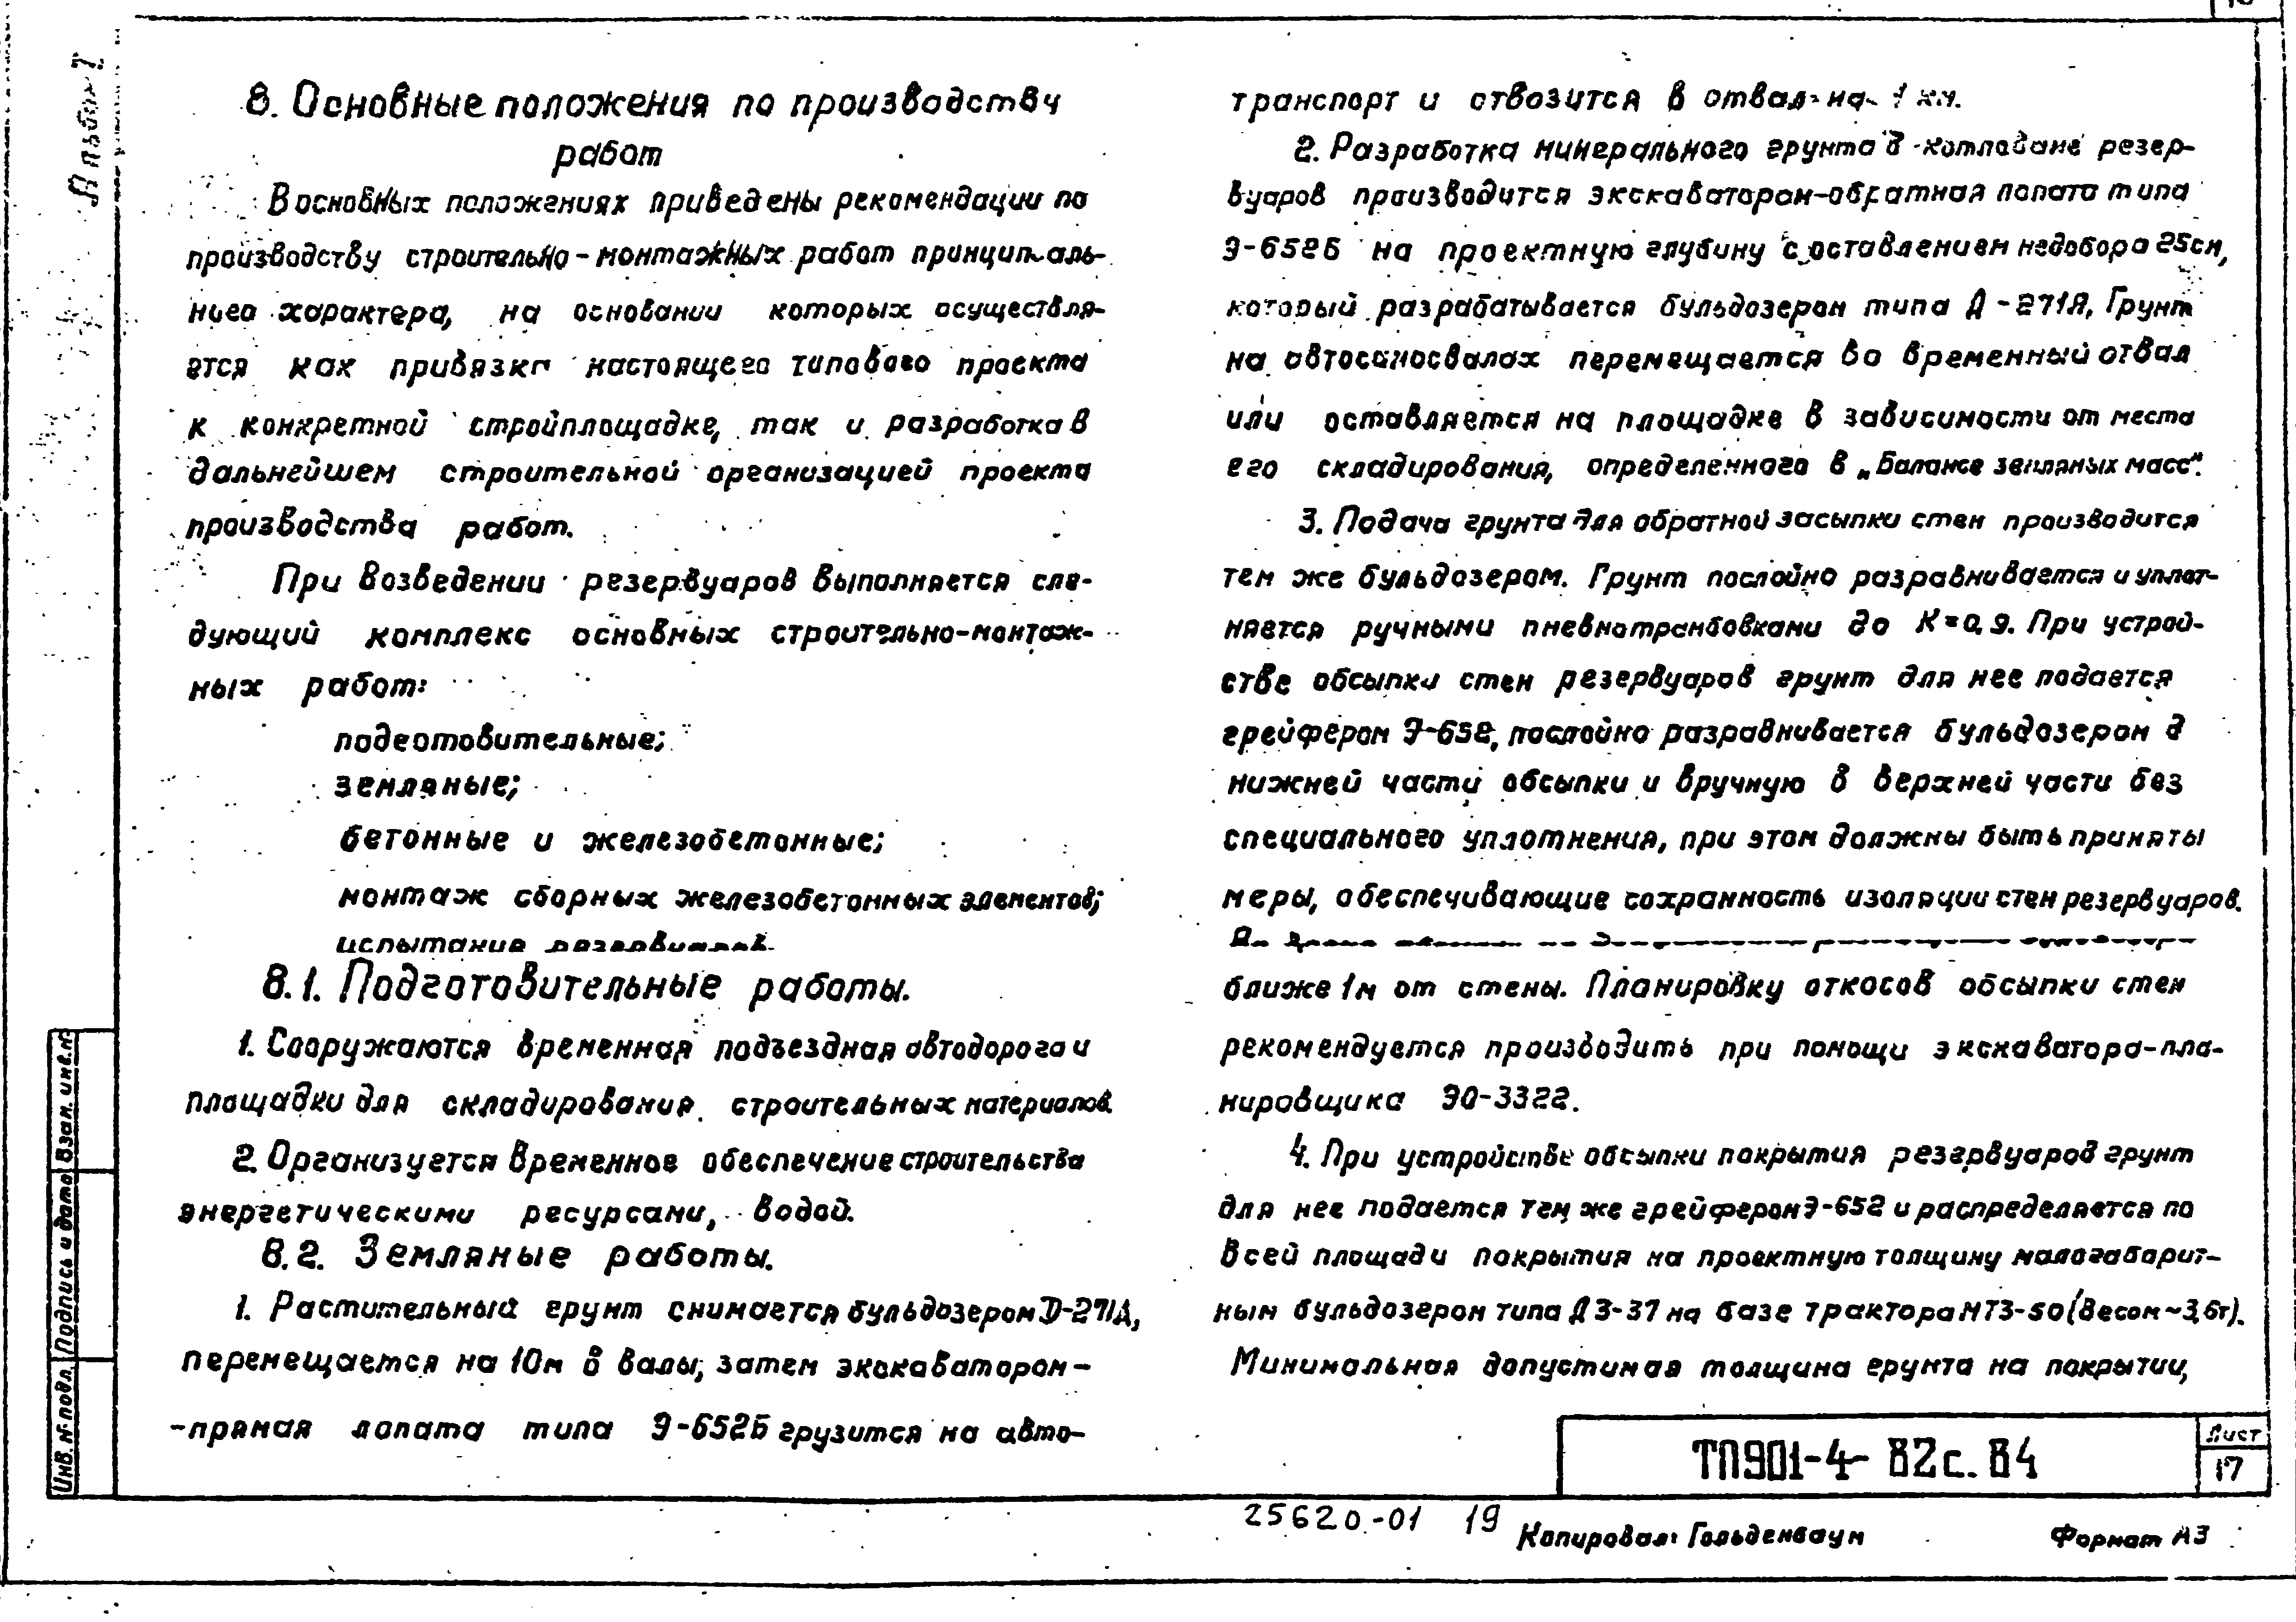 Альбом I
8. Основные положения по производству
работ
В основных положениях приведены рекомендации по
производству строительно-монтажных работ принципиаль-
ного характера, на основании которых осуществля-
ется как привязка настоящего типового проекта
к конкретной стройплощадке, так и разработка в
дальнейшем строительной организацией проекта
производства работ.
При возведении резервуаров выполняется сле-
дующий комплекс основных строительно-монтаж-
ных работ:
подготовительные;
земляные;
бетонные и железобетонные;
монтаж сборных железобетонных элементов;
испытание
8.1. Подготовительные работы.
1. Сооружаются временная подъездная автодорога и
площадки для складирования строительных материалов.
2. Организуется временное обеспечение строительства
энергетическими ресурсами, водой.
8.2. Земляные работы.
1. Растительный грунт снимается бульдозером Д-271А,
перемещается на 10м в валы, затем экскаватором-
-прямая лопата типа Э-652Б грузится на авто-
транспорт и отвозится в отвал на 1 км.
2. Разработка минерального грунта в котловане резер-
вуаров производится экскаватором-обратная лопата типа
Э-652Б на проектную глубину с оставлением недобора 25см,
который разрабатывается бульдозером типа Д-271А, Грунт
на автосамосвалах перемещается во временный отвал
или оставляется на площадке в зависимости от места
его складирования, определенного в „Балансе земляных масс".
3. Подача грунта для обратной засыпки стен производится
тем же бульдозером. Грунт послойно разравнивается и уплот-
няется ручными пневмотрамбовками до К=0,9. При устрой-
стве обсыпки стен резервуаров грунт для нее подается
грейфером Э-652, послойно разравнивается бульдозером в
нижней части обсыпки и вручную в верхней части без
специального уплотнения, при этом должны быть приняты
меры, обеспечивающие сохранность изоляции стен резервуаров.
ближе 1м от стены. Планировку откосов обсыпки стен
рекомендуется производить при помощи экскаватора-пла-
нировщика ЭО-3322.
4. При устройстве обсыпки покрытия резервуаров грунт
для нее подается тем же грейфером Э-652 и распределяется по
всей площади покрытия на проектную толщину малогабарит-
ным бульдозером типа ДЗ-37 на базе трактора МТЗ-50 (весом ~3,6т).
Минимальная допустимая толщина грунта на покрытии,
Инв. № подл. Подпись и дата Взам. инв. №
ТП901-4-82с.84
Лист
17
25620-01 19
Копировал: Гольденбаум
Формат А3